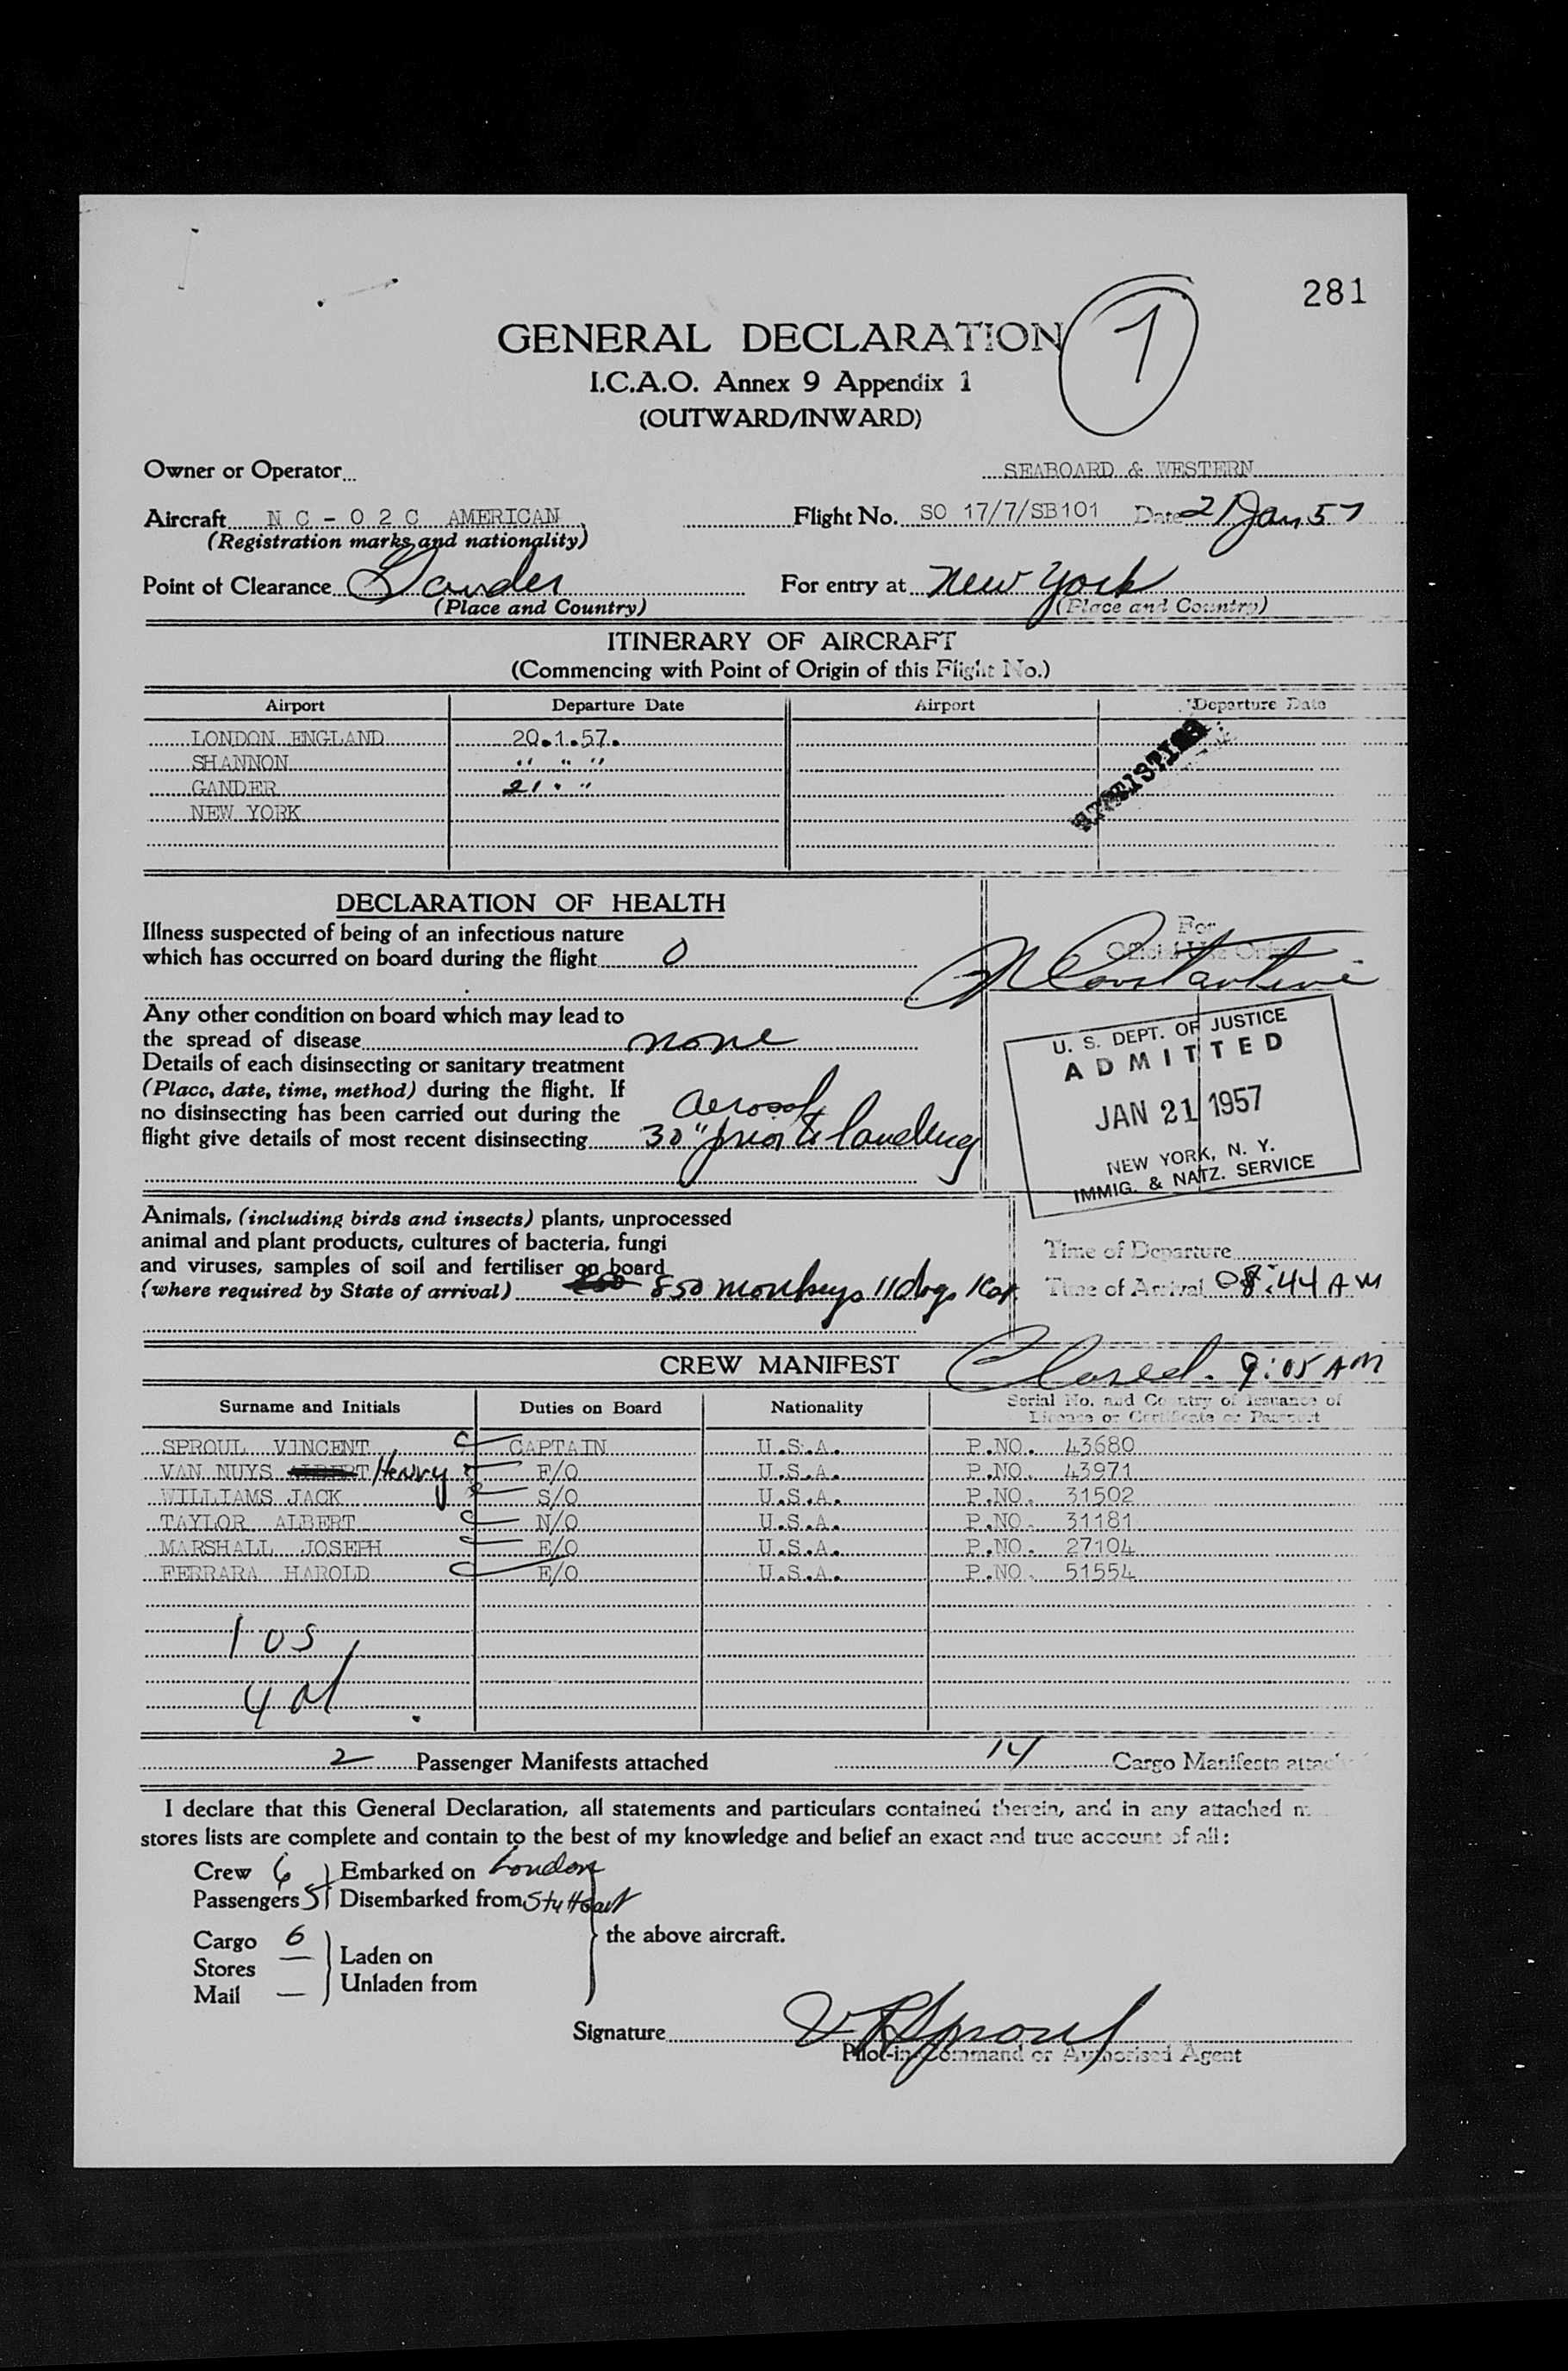 281
GENERAL DECLARATION
1
I.C.A.O. Annex 9 Appendix 1
(OUTWARD/INWARD)
Owner or Operator SEABOARD & WESTERN
Aircraft N C - 0 2 C AMERICAN Flight No. SO 17/7/SB101 Date 21 Jan 57
(Registration marks and nationality)
Point of Clearance Gander For entry at New York
(Place and Country) (Place and Country)
ITINERARY OF AIRCRAFT
(Commencing with Point of Origin of this Flight No.)
Airport Departure Date Airport Departure Date
LONDON ENGLAND 20.1.57.
SHANNON " " "
GANDER 21 " "
NEW YORK
DECLARATION OF HEALTH
For
Official Use Only
Illness suspected of being of an infectious nature
which has occurred on board during the flight 0
Constantine
Any other condition on board which may lead to
the spread of disease none
Details of each disinsecting or sanitary treatment
(Place, date, time, method) during the flight. If
no disinsecting has been carried out during the aerosol
flight give details of most recent disinsecting 30" prior to landing
U. S. DEPT. OF JUSTICE
ADMITTED
JAN 21 1957
NEW YORK, N. Y.
IMMIG. & NATZ. SERVICE
Animals, (including birds and insects) plants, unprocessed
animal and plant products, cultures of bacteria, fungi
and viruses, samples of soil and fertiliser on board
(where required by State of arrival) 850 monkeys 11 dogs 1 cat
Time of Departure
Time of Arrival 08:44 AM
CREW MANIFEST
Closed. 9:05 AM
Surname and Initials Duties on Board Nationality Serial No. and Country of Issuance of License or Certificate or Passport
SPROUL VINCENT CAPTAIN U.S.A. P.NO. 43680
VAN NUYS Henry F/O U.S.A. P.NO. 43971
WILLIAMS JACK S/O U.S.A. P.NO. 31502
TAYLOR ALBERT N/O U.S.A. P.NO. 31181
MARSHALL JOSEPH E/O U.S.A. P.NO. 27104
FERRARA HAROLD E/O U.S.A. P.NO. 51554
1 US
4 al
2 Passenger Manifests attached 14 Cargo Manifests
I declare that this General Declaration, all statements and particulars contained therein, and in any attached
stores lists are complete and contain to the best of my knowledge and belief an exact and true account of all:
Crew 6 Embarked on London
Passengers 5 Disembarked from Stuttgart
the above aircraft.
Cargo 6 Laden on
Stores —
Unladen from
Mail —
Signature V Sproul
Pilot-in-Command or Authorised Agent